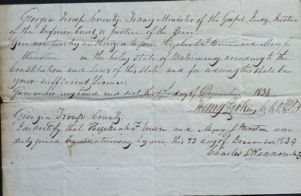 Georgia Troup County. To any Minister of the Gospel, Judge, Justice
of the Inferior Court, or Justice of the Peace
You are hereby authorized to join Hezekiah and Mary
in the holy State of Matrimony according to the
Constitution and Laws of this State and for so doing this shall be
your sufficient License.
Given under my hand and seal this day of December 1834
Georgia Troup County
I do certify that Hezekiah and Mary were
duly joined in matrimony by me, this 23 day of December 1834
Charles